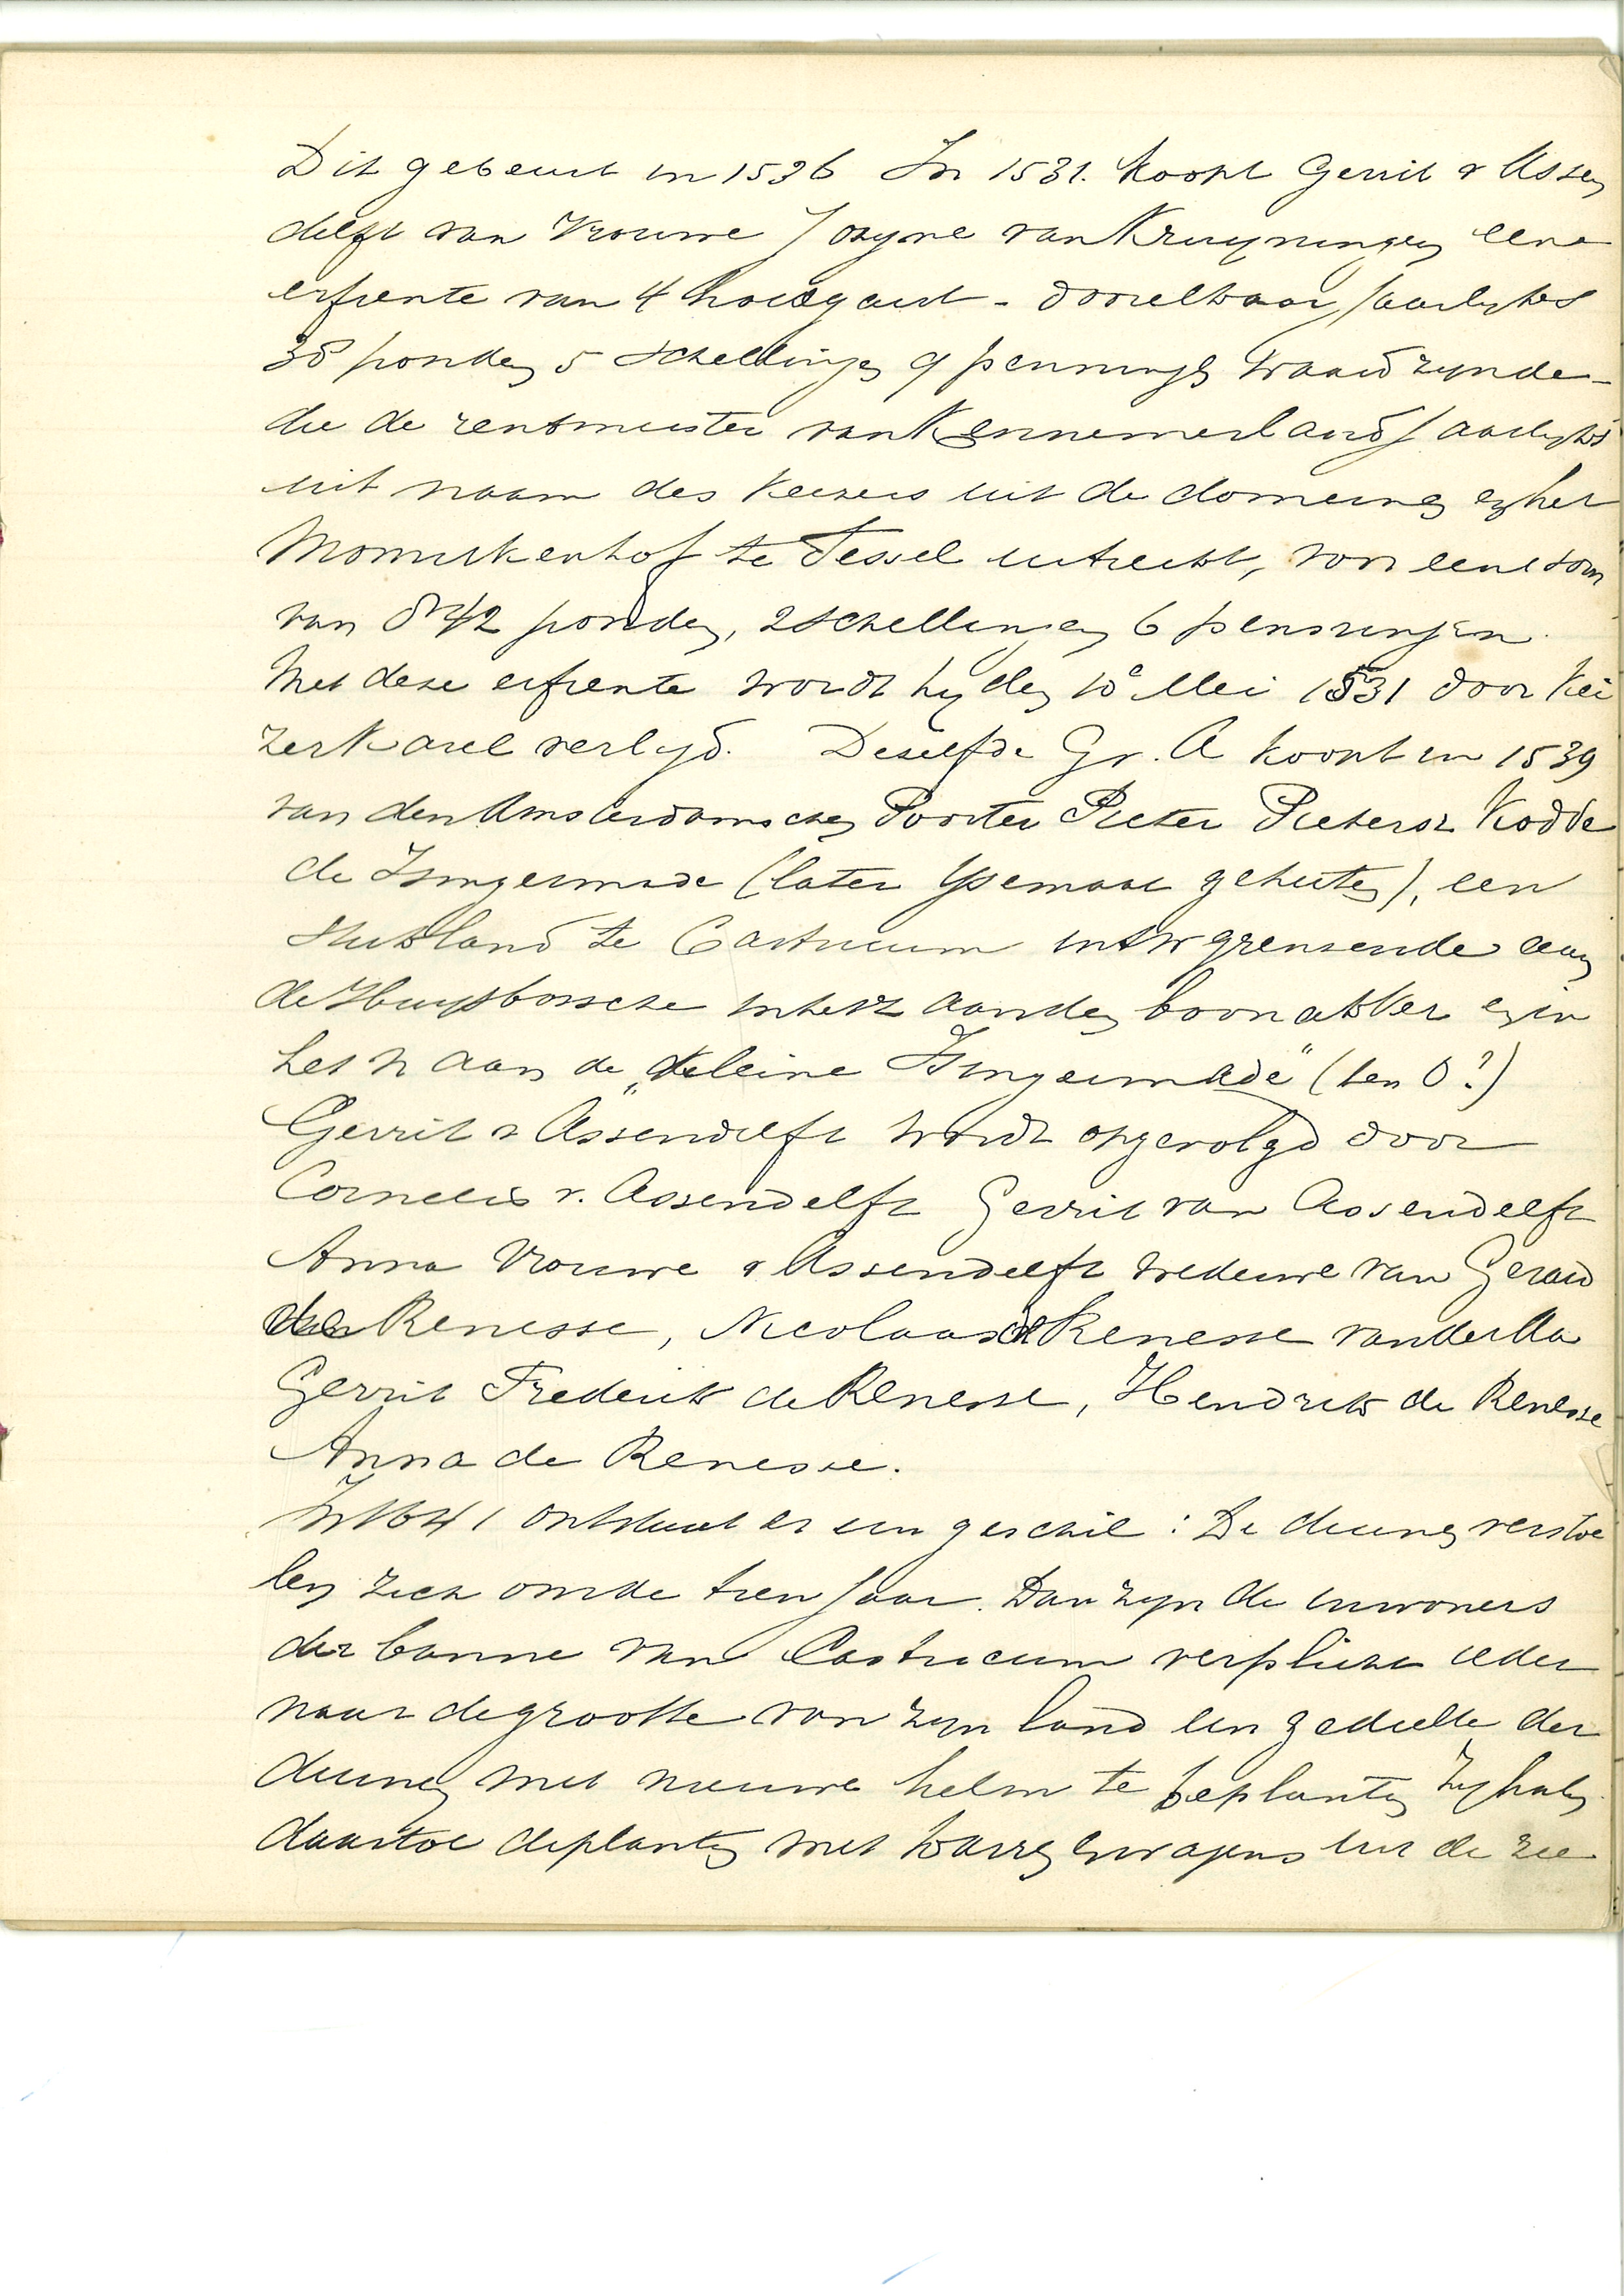 Dit gebeurt in 1536 In 1531. koopt Gerrit v Assen
delft van Vrouwe Josyne van Kruyningen eene
erfrente van 4 hoed gerst - jaarlyks
38 ponden 5 schellingen 9 penningen waard zynde -
die de rentmeester van Kennemerland jaarlyks
uit naam des keizers uit de domeinen en het
Monnikenhof te Tessel uitreikt, voor eene som
van 842 ponden, 2 schellingen 6 penningen.
Met deze erfrente wordt hy den 10e Mei 1531 door Kei
zer Karel verlyd. Deselfde G. v. A koopt in 1539
van den Amsterdamschen Poorter Pieter Pietersz Kodde
de Isingermade (later Ysemaat geheeten), een
stuk land te Castricum in t W grenzende aan
de in het Z aan den boonakker en in
het N aan de "kleine Isingermade" (ten O?)
Gerrit v Assendelft wordt opgevolgd door
Cornelis v. Assendelft Gerrit van Assendelft
Anna Vrouwe v Assendelft weduwe van Gerard
de Renesse, Nicolaas de Renesse van der Aa
Gerrit Frederik de Renesse, Hendrik de Renesse
Anna de Renesse.
In 1641 ontstaat er een geschil: De duinen verstoe
len zich om de tien jaar. Dan zyn de inwoners
der banne van Castricum verplicht ieder
naar de grootte van zyn land een gedeelte der
duinen met nieuwe helm te beplanten Zy halen
daartoe de planten met karren en wagens uit de zee